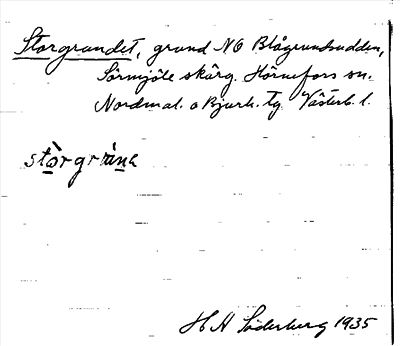 Storgrundet, grund NO Blågrundsudden,
Sörmjöle skärg. Hörnefors sn.
Nordmal. o Bjurh. tg. Västerb. l.
H H Söderberg 1935